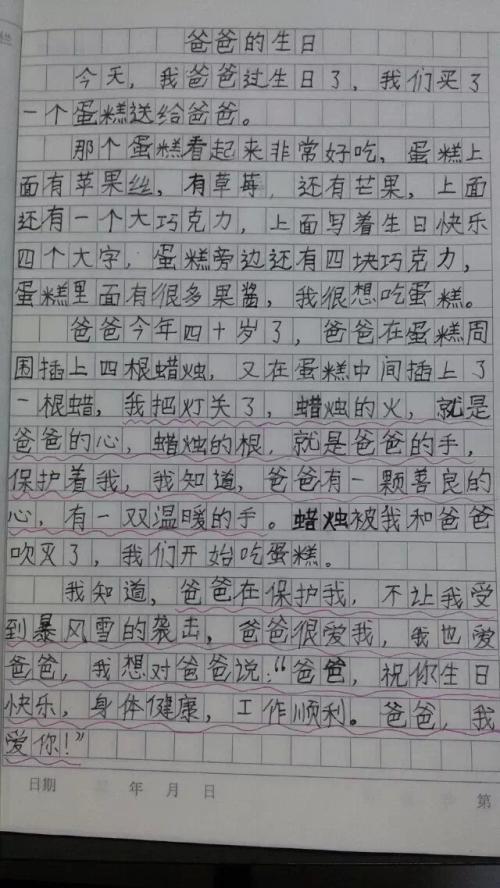 爸爸的生日
今天，我爸爸过生日了，我们买了
一个蛋糕送给爸爸。
那个蛋糕看起来非常好吃，蛋糕上
面有苹果丝，有草莓，还有芒果，上面
还有一个大巧克力，上面写着生日快乐
四个大字，蛋糕旁边还有四块巧克力，
蛋糕里面有很多果酱，我很想吃蛋糕。
爸爸今年四十岁了，爸爸在蛋糕周
围插上四根蜡烛，又在蛋糕中间插上了
一根蜡，我把灯关了，蜡烛的火，就是
爸爸的心，蜡烛的根，就是爸爸的手，
保护着我，我知道，爸爸有一颗善良的
心，有一双温暖的手。蜡烛被我和爸爸
吹灭了，我们开始吃蛋糕。
我知道，爸爸在保护我，不让我受
到暴风雪的袭击，爸爸很爱我，我也爱
爸爸，我想对爸爸说：“爸爸，祝你生日
快乐，身体健康，工作顺利。爸爸，我
爱你！”
日期 年 月 日 第